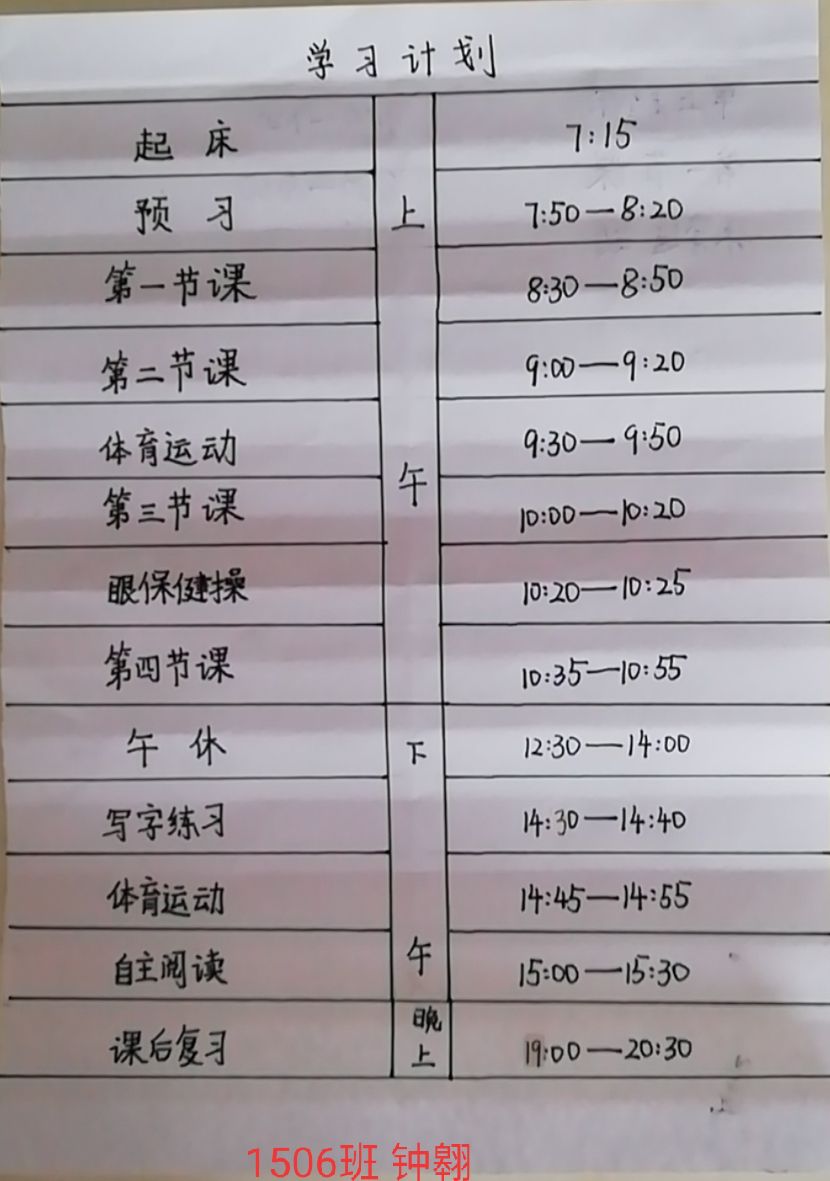 学习计划
起床 7:15
预习 上 7:50—8:20
第一节课 8:30—8:50
第二节课 9:00—9:20
体育运动 9:30—9:50
第三节课 午 10:00—10:20
眼保健操 10:20—10:25
第四节课 10:35—10:55
午休 下 12:30—14:00
写字练习 14:30—14:40
体育运动 14:45—14:55
自主阅读 午 15:00—15:30
课后复习 晚上 19:00—20:30
1506班 钟翱